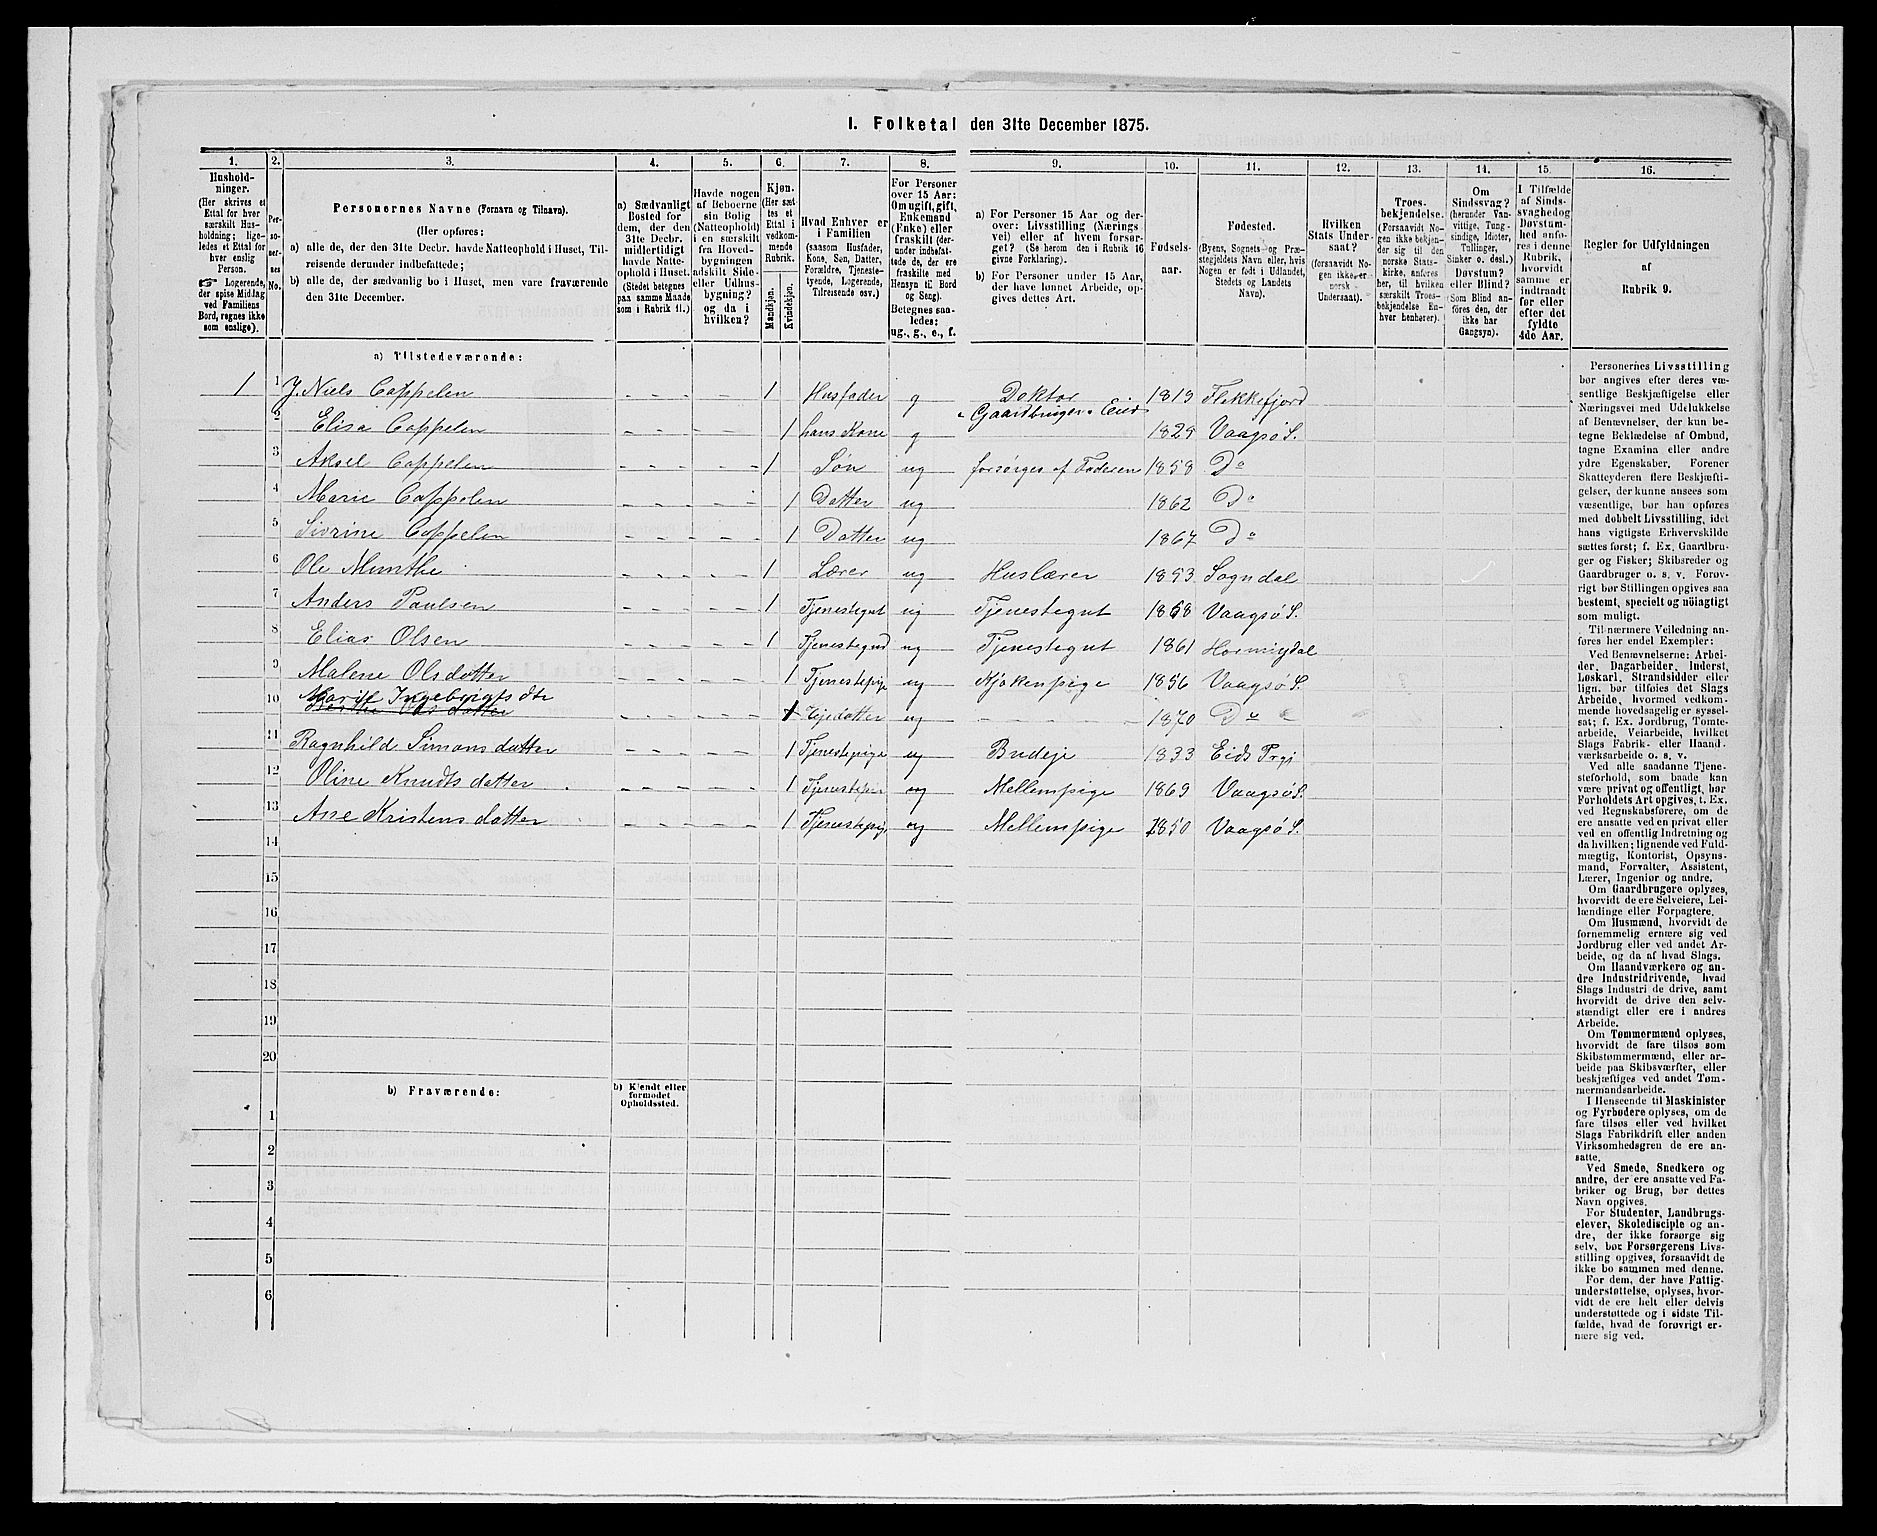 I. Folketal den 31te December 1875.
1. 2. 3. 4. 5. 6. 7. 8. 9. 10. 11. 12. 13. 14. 15. 16.
Hushold-
ninger.
(Her skrives et
Ettal for hver
særskilt Hus-
holdning; lige-
ledes et Ettal for
hver enslig
Person.
☞ Logerende,
der spise Middag
ved Familiens
Bord, regnes ikke
som enslige).
Per-
so-
ner-
nes
No.
Personernes Navne (Fornavn og Tilnavn).
(Her opføres:
a) alle de, der den 31te Decbr. havde Natteophold i Huset, Til-
reisende derunder indbefattede;
b) alle de, der sædvanlig bo i Huset, men vare fraværende
den 31te December.
a) Sædvanligt
Bosted for
dem, der den
31te Decbr.
midlertidigt
havde Natte-
ophold i Huset.
(Stedet betegnes
paa samme Maade
som i Rubrik 11.)
Havde nogen
af Beboerne
sin Bolig
(Natteophold)
i en særskilt
fra Hoved-
bygningen
adskilt Side-
eller Udhus-
bygning?
og da i
hvilken?
Kjøn.
(Her sæt-
tes et
Ettal i
vedkom-
mende
Rubrik.
Mandkjøn.
Kvindekjøn.
Hvad Enhver er
i Familien
(saasom Husfader,
Kone, Søn, Datter,
Forældre, Tjeneste-
tyende, Logerende,
Tilreisende osv.)
For Personer
over 15 Aar:
Om ugift, gift,
Enkemand
(Enke) eller
fraskilt (der-
under indbefat-
tede de, der ere
fraskilte med
Hensyn til Bord
og Seng).
Betegnes saa-
ledes:
ug., g., e., f.
a) For Personer 15 Aar og der-
over: Livsstilling (Nærings-
vei) eller af hvem forsør-
get? (Se herom den i Rubrik 16
givne Forklaring).
b) For Personer under 15 Aar,
der have lønnet Arbeide, op-
gives dettes Art.
Fødsels-
aar.
Fødested.
(Byens, Sognets og Præ-
stegjeldets Navn eller, hvis
Nogen er født i Udlandet,
Stedets og Landets
Navn).
Hvilken
Stats Under-
saat?
(forsaavidt No-
gen ikke er
norsk
Undersaat).
Troes-
bekjendelse.
(Forsaavidt No-
gen ikke bekjen-
der sig til den
norske Stats-
kirke, anføres
her, til hvilken
særskilt Troes-
bekjendelse En-
hver henhører).
Om
Sindssvag?
(herunder Van-
vittige, Tung-
sindige, Idioter,
Tullinger,
Sinker o. desl.)
Døvstum?
eller Blind?
(Som Blind an-
føres den, der
ikke har
Gangsyn).
I Tilfælde
af Sinds-
svaghed og
Døvstum-
hed anfø-
res i denne
Rubrik,
hvorvidt
samme er
indtraadt
før eller
efter det
fyldte
4de Aar.
Regler for Udfyldningen
af
Rubrik 9.
a) Tilstedeværende:
1 1 J. Niels Cappelen 1 Husfader g Doktor 1819 Flekkefjord
Gaardbruger
2 Elisa Cappelen 1 hans Kone g 1829 Vaagsø S.
3 Aksel Cappelen 1 Søn ug forsørges af Faderen 1858 Do
4 Marie Cappelen 1 Datter ug 1862 Do
5 Sivrine Cappelen 1 Datter ug 1867 Do
6 Ole Munthe 1 Lærer ug Huslærer 1853 Sogndal
7 Anders Paulsen 1 Tjenestegut ug Tjenestegut 1858 Vaagsø S.
8 Elias Olsen 1 Tjenestegud ug Tjenestegut 1861
9 Malene Olsdatter 1 Tjenestepige ug Kjøkkenpige 1856 Vaagsø S.
10 Marite Ingebrigts dtr 1 ug 1870 Do
11 Ragnhild Simonsdatter 1 Tjenestepige ug Budeje 1833 Eids Prgj
12 Oline Knudtsdatter 1 Tjenestepige ug Mellempige 1869 Vaagsø S.
13 Ane Kristensdatter 1 Tjenestepige ug Mellempige 1850 Vaagsø S.
14
15
16
17
18
19
20
b) Fraværende:
b) Kjendt eller
formodet
Opholdssted.
1
2
3
4
5
6
Personernes Livsstilling
bør angives efter deres væ-
sentlige Beskjæftigelse eller
Næringsvei med Udelukkelse
af Benævnelser, der kun be-
tegne Beklædelse af Ombud,
tagne Examina eller andre
ydre Egenskaber. Forener
Skatteyderen flere Beskjæfti-
gelser, der kunne ansees som
væsentlige, bør han opføres
med dobbelt Livsstilling, idet
hans vigtigste Erhvervskilde
sættes først; f. Ex. Gaardbru-
ger og Fisker; Skibsreder og
Gaardbruger o. s. v. Forøv-
rigt bør Stillingen opgives saa
bestemt, specielt og nøiagtigt
som muligt.
Til nærmere Veiledning an-
føres her endel Exempler:
Ved Benævnelserne: Arbei-
der, Dagarbeider, Inderst,
Løskarl, Strandsidder eller
lign. bør tilføies det Slags
Arbeide, hvormed vedkom-
mende hovedsagelig er syssel-
sat; f. Ex. Jordbrug, Tomte-
arbeide, Veiarbeide, hvilket
Slags Fabrik- eller Haand-
værksarbeide o. s. v.
Ved alle saadanne Tjene-
steforhold, som baade kan
være privat og offentligt, bør
Forholdets Art opgives, t. Ex.
ved Regnskabsførere, om de
ere ansatte ved en privat eller
ved en offentlig Indretning og
da hvilken; lignende ved Fuld-
mægtig, Kontorist, Opsyns-
mand, Forvalter, Assistent,
Lærer, Ingeniør og andre.
Om Gaardbrugere oplyses,
hvorvidt de ere Selveiere, Lei-
lændinge eller Forpagtere.
Om Husmænd, hvorvidt de
fornemmelig ernære sig ved
Jordbrug eller ved andet Ar-
beide, og da af hvad Slags.
Om Haandværkere og an-
dre Industridrivende, hvad
Slags Industri de drive, samt
hvorvidt de drive den selv-
stændigt eller ere i andres
Arbeide.
Om Tømmermænd oplyses,
hvorvidt de fare tilsøs som
Skibstømmermænd, eller ar-
beide paa Skibsværfter, eller
beskjæftiges ved andet Tøm-
mermandsarbeide.
I Henseende til Maskinister
og Fyrbødere oplyses, om de
fare tilsøs eller ved hvilket
Slags Fabrikdrift eller anden
Virksomhedsgren de ere an-
satte.
Ved Smede, Snedkere og
andre, der ere ansatte ved Fa-
briker og Brug, bør dettes
Navn opgives.
For Studenter, Landbrugs-
elever, Skoledisciple og an-
dre, der ikke forsørge sig
selv, bør Forsørgerens Livs-
stilling opgives, forsaavidt de
ikke bo sammen med denne.
For dem, der have Fattig-
understøttelse, oplyses, hvor-
vidt de ere helt eller delvis
understøttede og i sidste Til-
fælde, hvad de forøvrigt er-
nære sig ved.